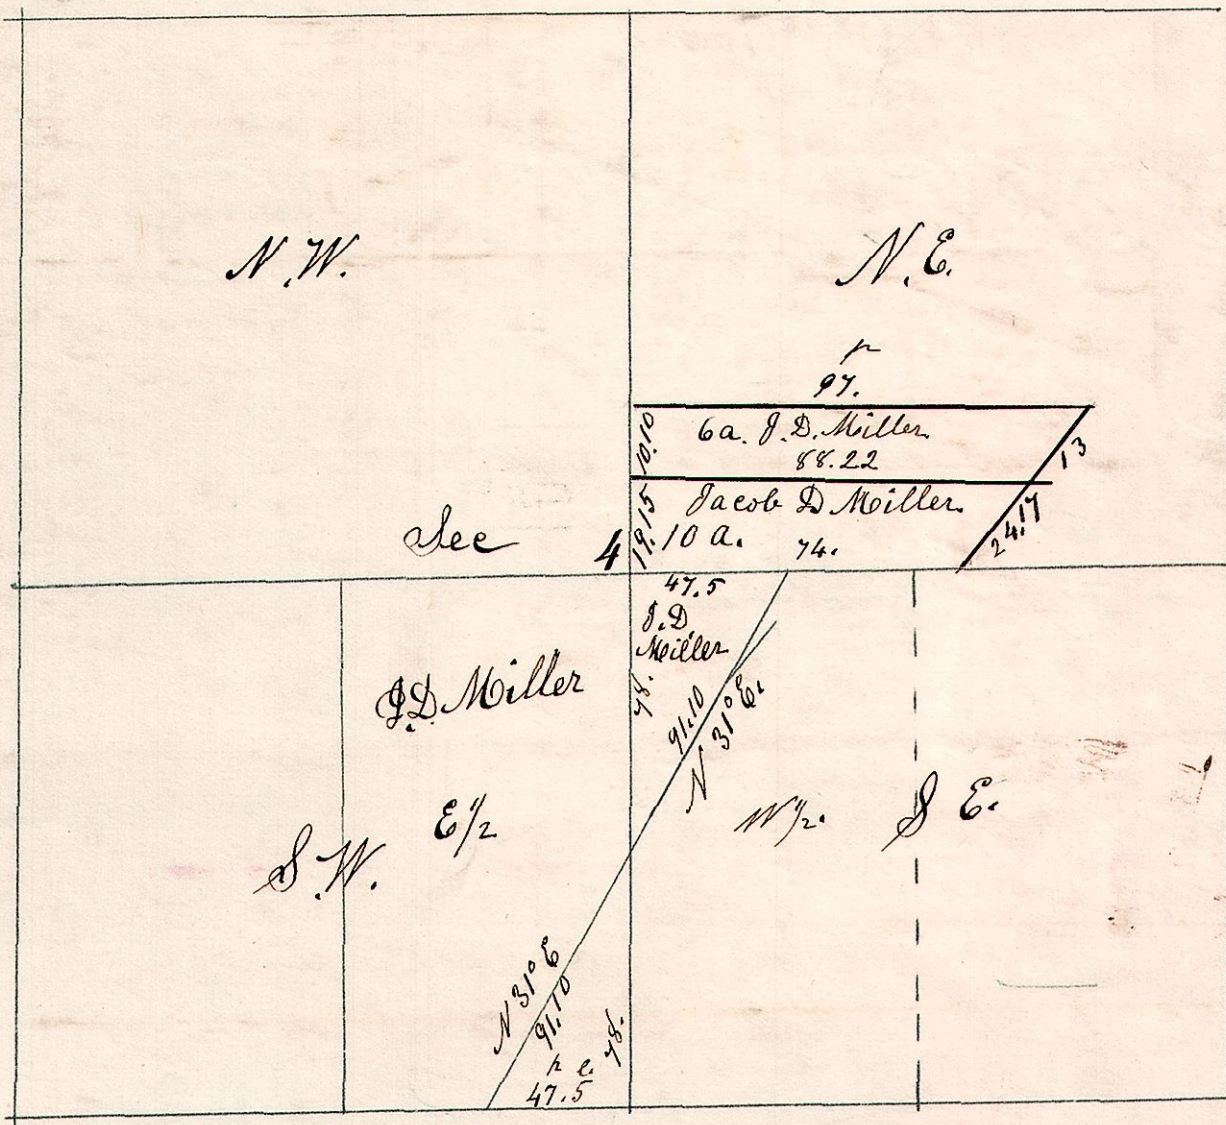 N.W.
N.E.
97.
10.10
6 a. J. D. Miller
88.22
13
19.15
Jacob D Miller.
10 a.
74.
24.17
Sec 4
47.5
J.D.
Miller
78.
91.10
N 31° E.
J.D. Miller
E 1/2
S.W.
W 1/2.
S E.
N 31° E
91.10
78.
47.5